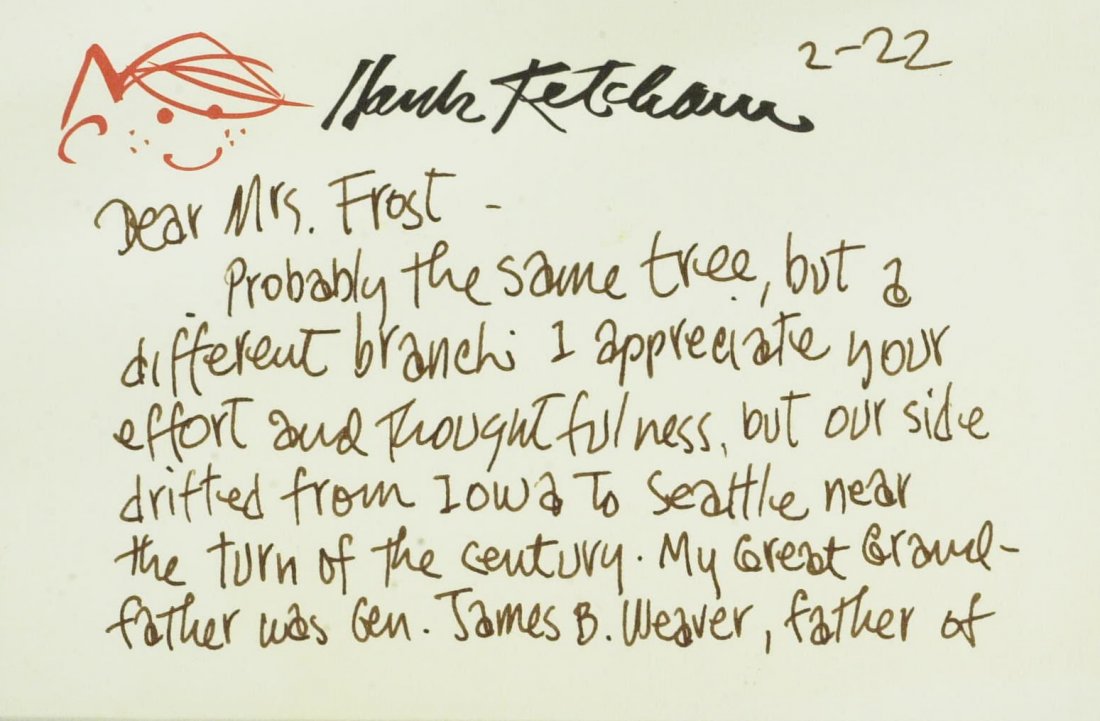 Hank Ketcham 2-22
Dear Mrs. Frost -
Probably the same tree, but a
different branch. I appreciate your
effort and thoughtfulness, but our side
drifted from Iowa to Seattle near
the turn of the century. My Great Grand-
father was Gen. James B. Weaver, father of